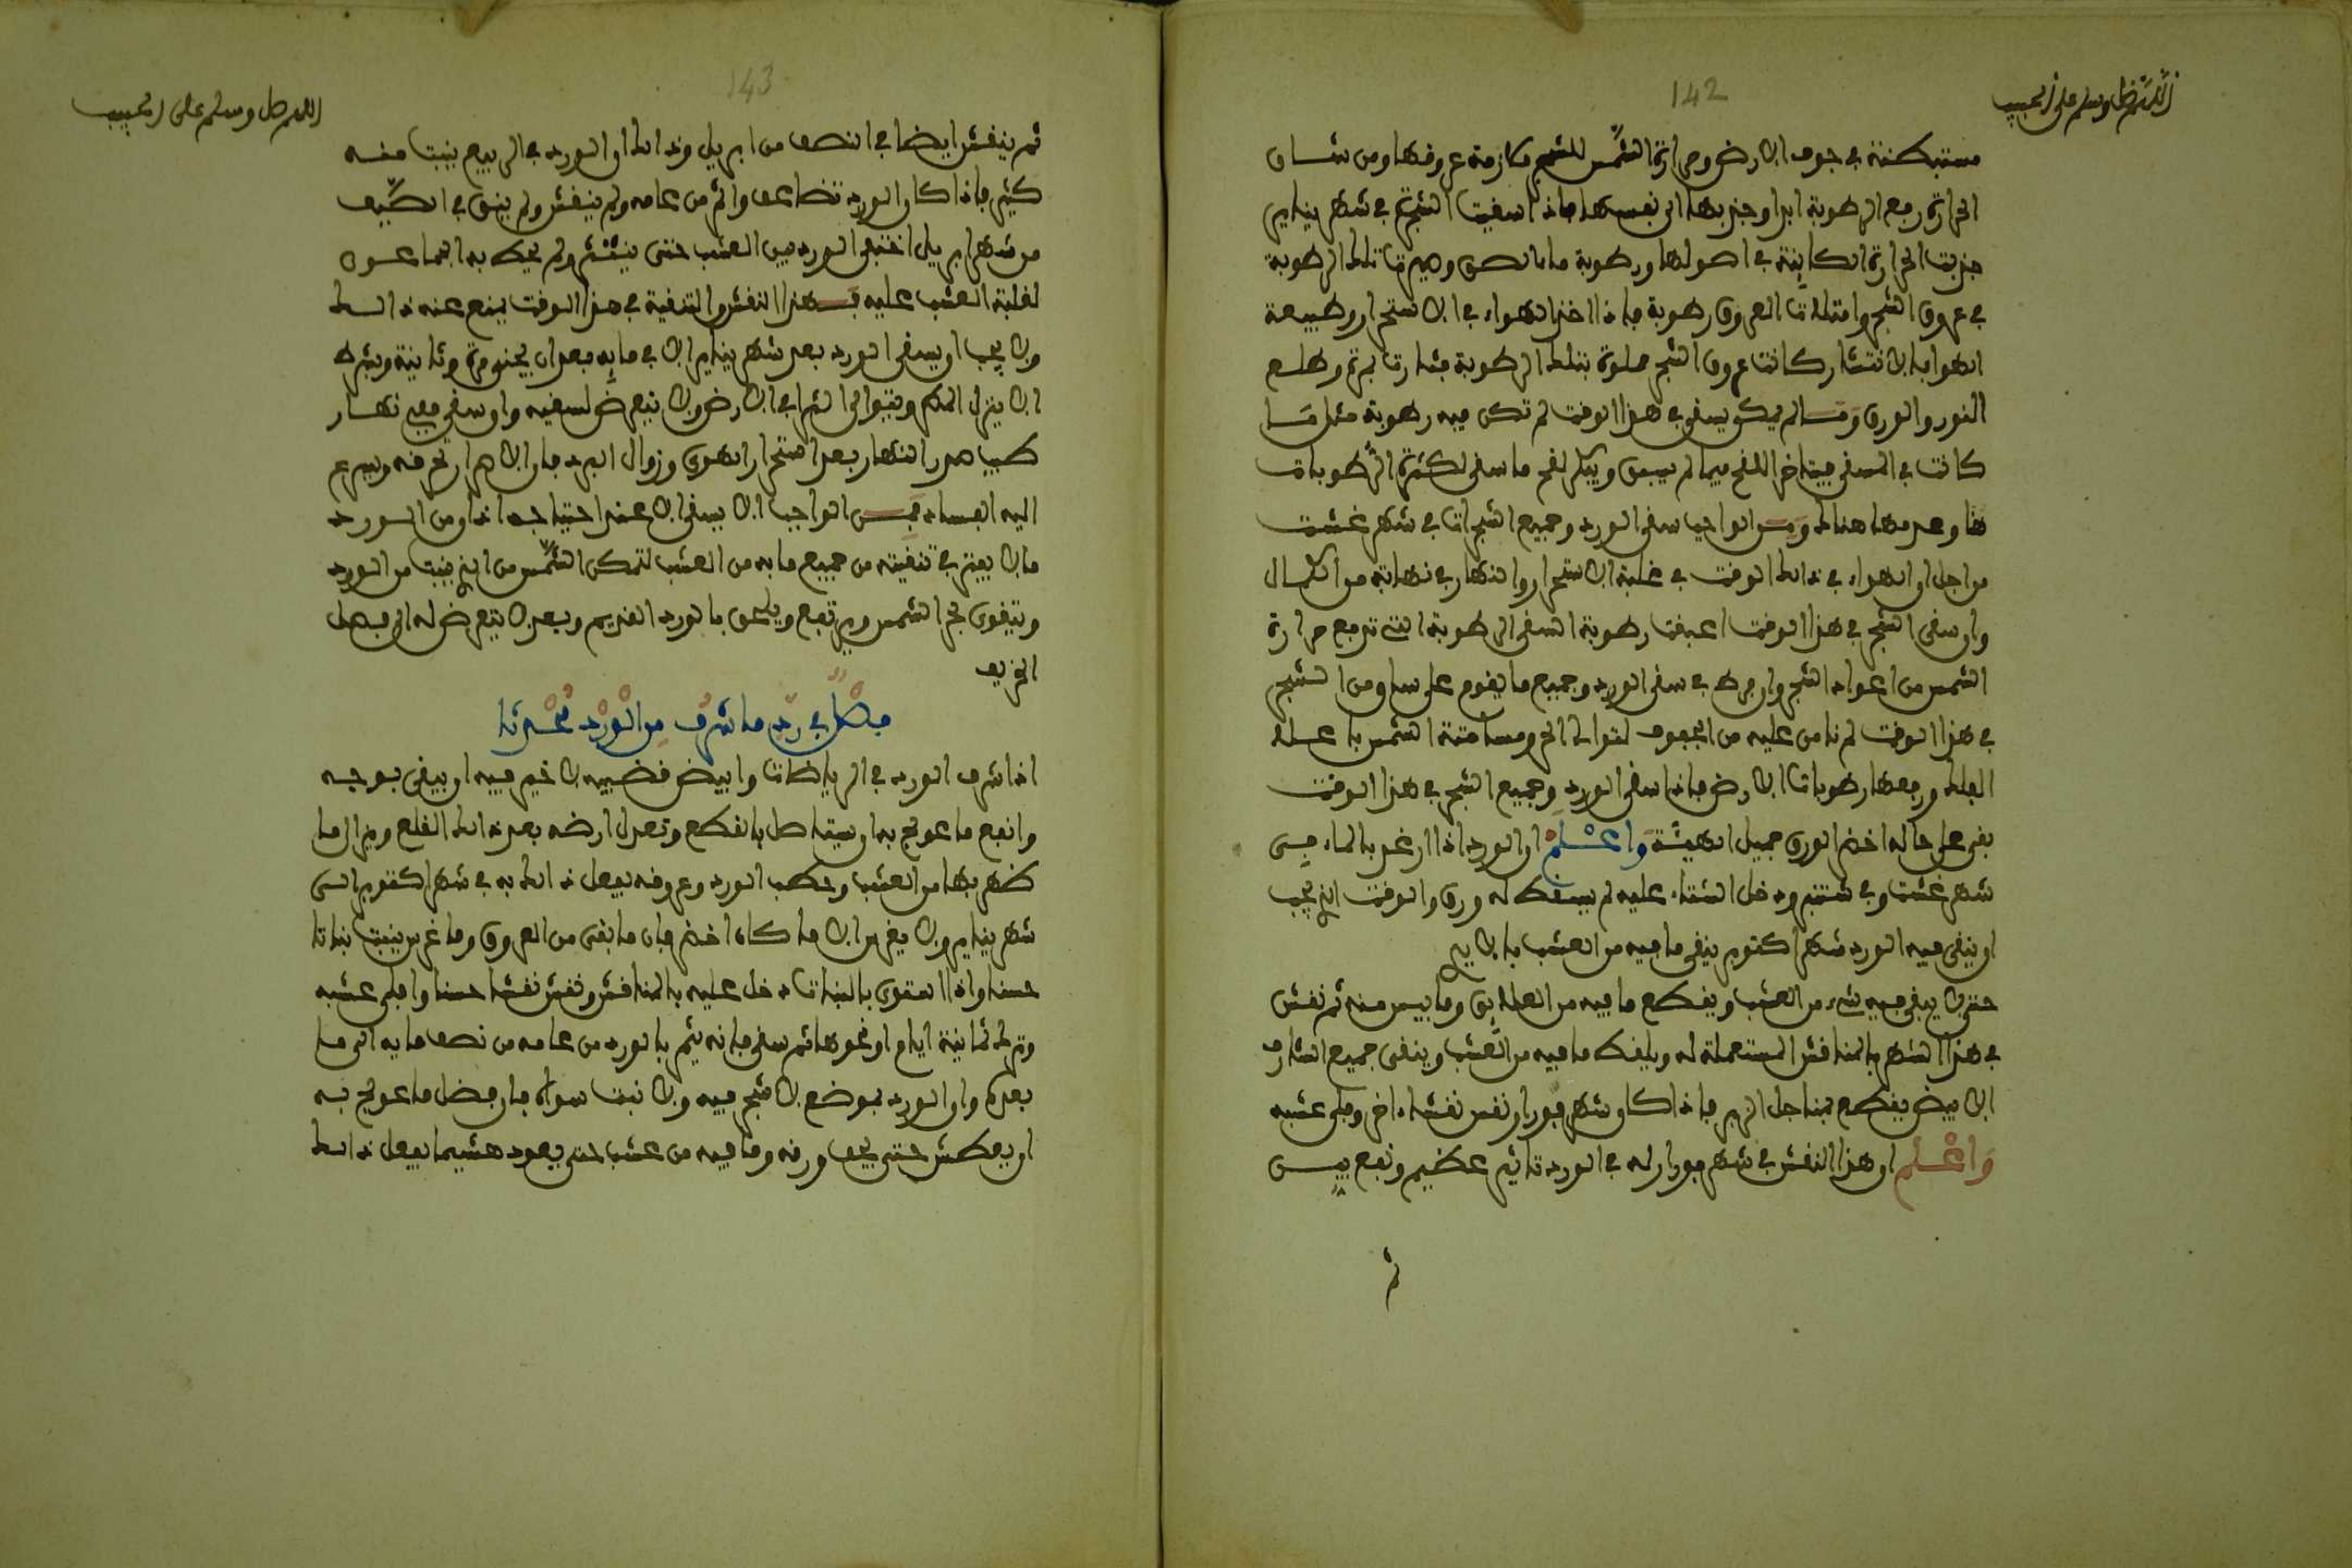 142
اللهم صل وسلم على الحبيب
مستبكنة في جوف الارض وحرارة الشمس للشجر ملازمة عروقها ومن شان
الحرارة رفع الرطوبة ابدا وجذبها الى نفسها فاذا اسقيت الشجرة في شهر يناير
جذبت الحرارة الكاينة في اصولها ورطوبة ما تلك الرطوبة
في عروق الشجر وامتلات العروق رطوبة فاذا اخذ الهواء في الاستحرار وطبيعة
الهوا بالانتشار كانت عروق الشجر مملوة بتلك الرطوبة وطلع
النور والورق وما لم يكن يسقى في هذا الوقت لم تكن فيه رطوبة مثل ما
كانت في المسقي فيتاخر اللقح فيما لم يسق ويبكر لقح ما سقي لكثرة الرطوبات
هنا وعدمها هناك ومن الواجب سقي الورد وجميع الشجرات في شهر غشت
من اجل ان الهواء في ذلك الوقت في غلبة الاستحرار والنهار في نهايته من الكمال
وان سقي الشجر في هذا الوقت اعبقت رطوبة السقي الرطوبة التي ترفع حرارة
الشمس من اعواد الشجر وان فرط في سقي الورد وجميع ما يقوم على ساق من الشجر
في هذا الوقت لم نامن عليه من الجفوف لتوالي الحر ومسامتة الشمس باعلا
الفلك ورفعها رطوبات الارض فاذا سقي الورد وجميع الشجر في هذا الوقت
بقي على حاله اخضر الورق جميل الهيئة واعلم ان الورد اذا ارغد بالماء في
شهر غشت وفي شتنبر ودخل الشتاء عليه لم يسقط له ورق والوقت الذي يجب
ان ينقى فيه الورد شهر اكتوبر ينقى ما فيه من العشب بالايدي
حتى لا يبقى فيه شيء من العشب ويقطع ما فيه من العلايق وما يبس منه ثم نقش
في هذا الشهر بالمناقش المستعملة له ويلقط ما فيه من العشب وينقى جميع الشارف
الابيض يقطع بمناجل الزبر فاذا كان شهر فبراير نقش نقشا اخر وقلب عشبه
واعلم ان هذا النقش في شهر فبراير له في الورد تاثير عظيم ونفع بين
ثم
143
اللهم صل وسلم على الحبيب
ثم ينقش ايضا في النصف من ابريل وذلك ان الورد في الربيع ينبت منه
كثير فاذا كان الورد تضاعف واثمر من عامه ولم ينقش ولم ينق في الصيف
من شهر ابريل اختفى الورد بين العشب حتى ينثر ولم يحط به الجماعون
لغلبة العشب عليه فهذا النقش والتنقية في هذا الوقت يمنع عنه ذلك
ولا يجب ان يسقى الورد بعد شهر يناير الا في مايه بعد ان يجنى مرة وثانية وشرط
الا ينزل المطر ويتوالى الثرا في الارض ولا يتعرض لسقيه وان سقي فعند نهار
طيب صدر النهار بعد استحرار الهوى وزوال البرد فان الا ويسرع
اليه الفساد فمن الواجب الا يسقى الا عند احتياجه اذ اومن الورد
ما لا يفتر في تنقيته من جميع ما به من العشب لتمكن الشمس من الذي ينبت من الورد
ويتقوى بحر الشمس ويرتفع ويلحق بالورد القديم وبعد لا يتعرض له الى فصل
الخريف
فصل في رد ما شرف من الورد محدثا
اذا شرف الورد في الرياضات وابيض قضيبه لا خير فيه ان يبقى بوجه
وانفع ما عولج به ان يستاصل بالقطع وتعدل ارضه بعد ذلك القلع ويزال ما
ظهر بها من العشب وحطب الورد وعروقه يفعل ذلك به في شهر اكتوبر الى
شهر يناير ولا يغرس الا ما كان اخضر فان ما بقي من العروق وما غرس ينبت نباتا
حسنا واذا استوى بالنبات دخل عليه بالمناقش ونقش نقشا حسنا واقلب عشبه
وترك ثمانية ايام او نحوها ثم سقي فانه يثمر بالورد من عامه من نصف مايه الى ما
بعده وان الورد بموضع لا شجر فيه ولا نبت سواه فان افضل ما عولج به
ان يعطش حتى يجف ورقه وما فيه من عشب حتى يعود هشيما يفعل ذلك